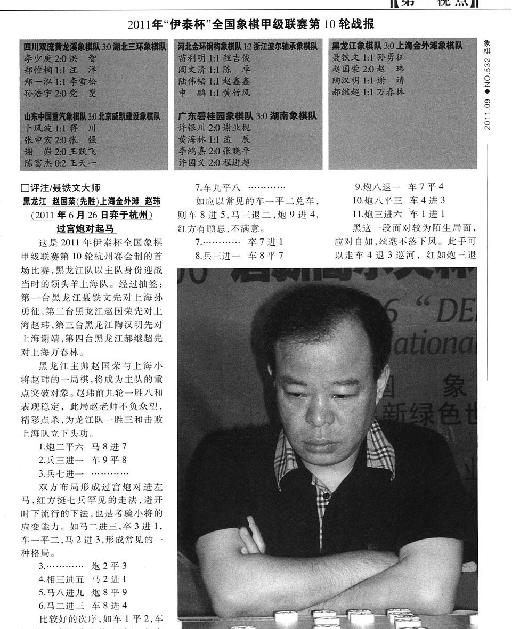 第 视点
2011年“伊泰杯”全国象棋甲级联赛第10轮战报
四川双流黄龙溪象棋队 3:0 湖北三环象棋队
李少庚 2:0 洪 智
郑惟桐 1:1 汪 洋
郑一泓 1:1 李雪松
孙浩宇 2:0 党 斐
山东中国重汽象棋队 3:0 北京威凯建设象棋队
卜凤波 1:1 蒋 川
张申宏 2:0 张 强
谢 岿 2:0 王跃飞
陈富杰 0:2 王天一
河北金环钢构象棋队 1:2 浙江波尔轴承象棋队
苗利明 1:1 程吉俊
阎文清 1:1 陈 卓
陆伟韬 1:1 赵鑫鑫
申 鹏 1:1 黄竹风
广东碧桂园象棋队 3:0 湖南象棋队
许银川 2:0
黄海林 1:1
李鸿嘉 2:0 张晓平
许国义 2:0 程进超
黑龙江象棋队 3:0 上海金外滩象棋队
聂铁文 1:1 孙勇征
赵国荣 2:0 赵 玮
陶汉明 1:1 谢 靖
郝继超 1:1 万春林
象棋 2011·09 ●NO.532
□评注/聂铁文大师
黑龙江 赵国荣(先胜)上海金外滩 赵玮
(2011年6月26日弈于杭州)
过宫炮对起马
这是2011年伊泰杯全国象棋
甲级联赛第10轮杭州赛会制的首
场比赛,黑龙江队以主队身份迎战
当时的领头羊上海队。经过抽签:
第一台黑龙江聂铁文先对上海孙
勇征,第二台黑龙江赵国荣先对上
海赵玮,第三台黑龙江陶汉明先对
上海谢靖,第四台黑龙江郝继超先
对上海万春林。
黑龙江主帅赵国荣与上海小
将赵玮的一局棋,将成为主队的重
点突破对象。赵玮前九轮一胜八和
表现稳定,此局赵老帅不负众望,
精彩点杀,为龙江队一胜三和击败
上海队立下头功。
1.炮二平六 马8进7
2.兵三进一 车9平8
3.兵七进一 …………
双方布局形成过宫炮对进左
马,红方挺七兵罕见的走法,避开
时下流行的下法,也是考验小将的
应变能力。如马二进三,卒3进1,
车一平二,马2进3,形成常见的一
种格局。
3.………… 炮2平3
4.相三进五 马2进1
5.马八进九 炮8平9
6.马二进三 车8进4
比较好的次序,如车1平2,车
7.车九平八 …………
如应以常见的车一平二兑车,
则车8进5,马三退二,炮9进4,
红方有顾忌,不满意。
7.………… 卒7进1
8.兵三进一 车8平7
9.炮八退一 车7平4
10.炮八平三 车4进3
11.炮三进六 车1进1
黑这一段面对较为陌生局面,
应对自如,丝毫不落下风。此手可
以走车4退3巡河,红如炮一退
6 “ DE
national
象
新绿色